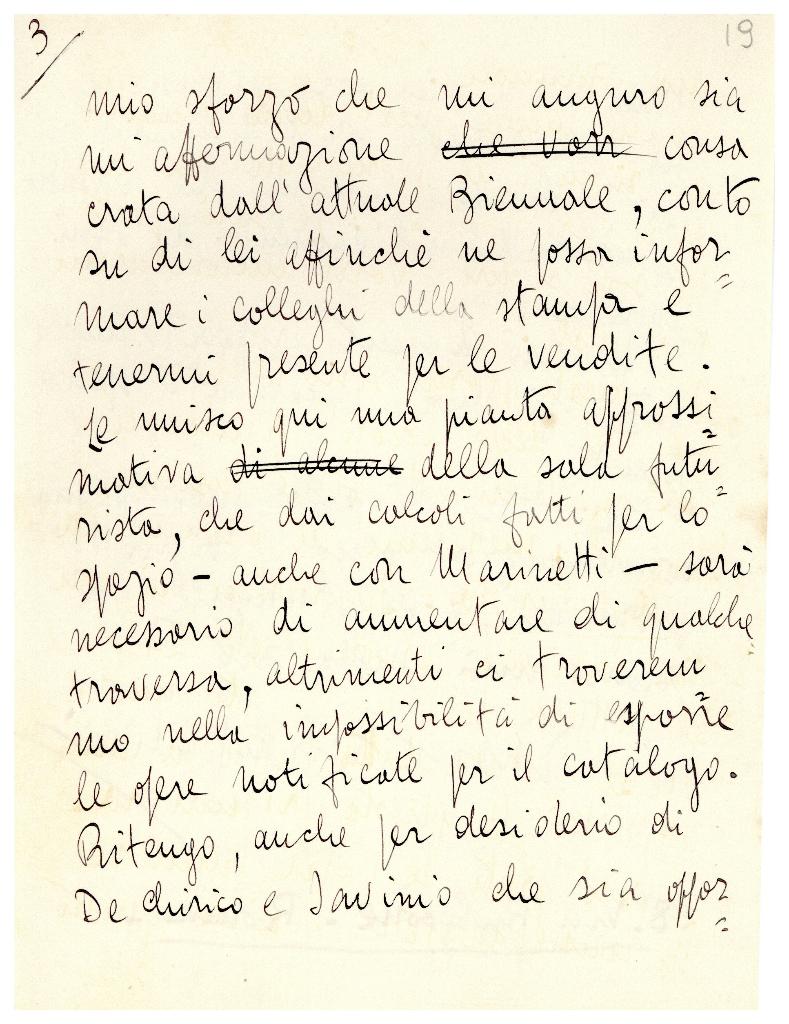 3/ 19
mio sforzo che mi auguro sia
un'affermazione che von consa
crata dall'attuale Biennale, conto
su di lei affinchè ne possa infor=
mare i colleghi della stampa e
tenermi presente per le vendite.
Le unisco qui una pianta approssi=
mativa di alcune della sala futu=
rista, che dai calcoli fatti per lo
spazio – anche con Marinetti – sarà
necessario di aumentare di qualche
traversa, altrimenti ci troverem=
mo nella impossibilità di esporre
le opere notificate per il catalogo.
Ritengo, anche per desiderio di
De Chirico e Savinio che sia oppor=